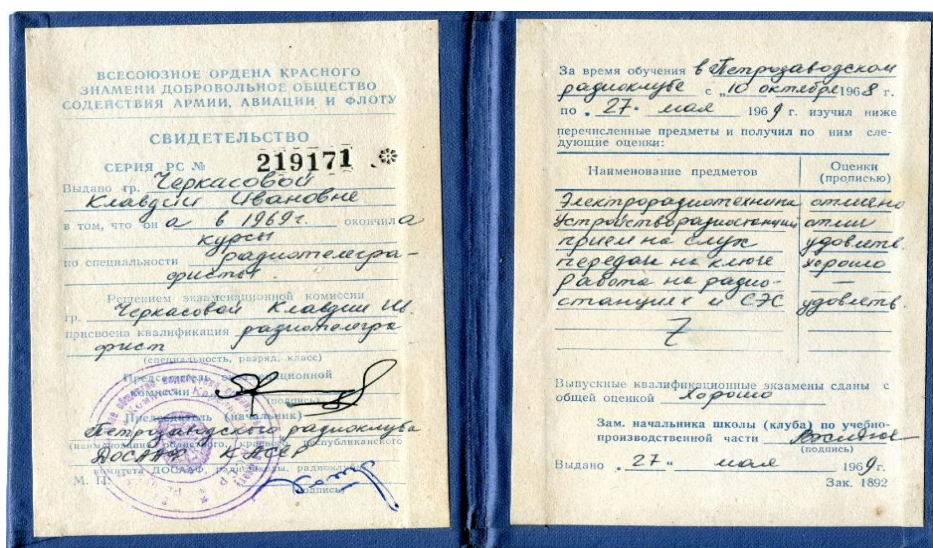 ВСЕСОЮЗНОЕ ОРДЕНА КРАСНОГО
ЗНАМЕНИ ДОБРОВОЛЬНОЕ ОБЩЕСТВО
СОДЕЙСТВИЯ АРМИИ, АВИАЦИИ И ФЛОТУ
СВИДЕТЕЛЬСТВО
СЕРИЯ РС № 219171
Выдано гр. Черкасовой
Клавдии Ивановне
в том, что он а в 1969г. окончил а
курсы
по специальности радиотелегра-
фисты.
Решением экзаменационной комиссии
гр. Черкасовой Клавдии Ив.
присвоена квалификация радиотелегра
фист
(специальность, разряд, класс)
Председатель экзаменационной
комиссии
(подпись)
Председатель (начальник)
Петрозаводского радиоклуба
(наименование областного, краевого, республиканского
ДОСААФ КАССР
комитета ДОСААФ, радиошколы, радиоклуба)
М. П.
(подпись)
За время обучения в Петрозаводском
радиоклубе с „10 октября 1968 г.
по „27" мая 1969 г. изучил ниже
перечисленные предметы и получил по ним сле-
дующие оценки:
Наименование предметов Оценки (прописью)
Электрорадиотехника отлично
Устройство радиостанции отли
прием на слух удовлетв.
передач на ключе хорошо
Работа на радио- —
станциях и СЭС удовлетв.
Выпускные квалификационные экзамены сданы с
общей оценкой хорошо
Зам. начальника школы (клуба) по учебно-
производственной части
(подпись)
Выдано „27" мая 1969 г.
Зак. 1892